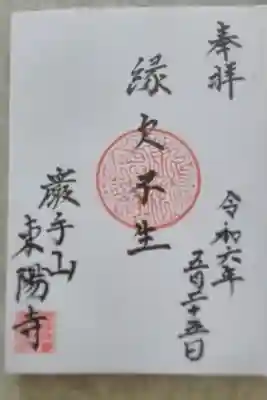 奉拝
令和六年
五月二十五日
縁欠子生
巌手山
東陽寺